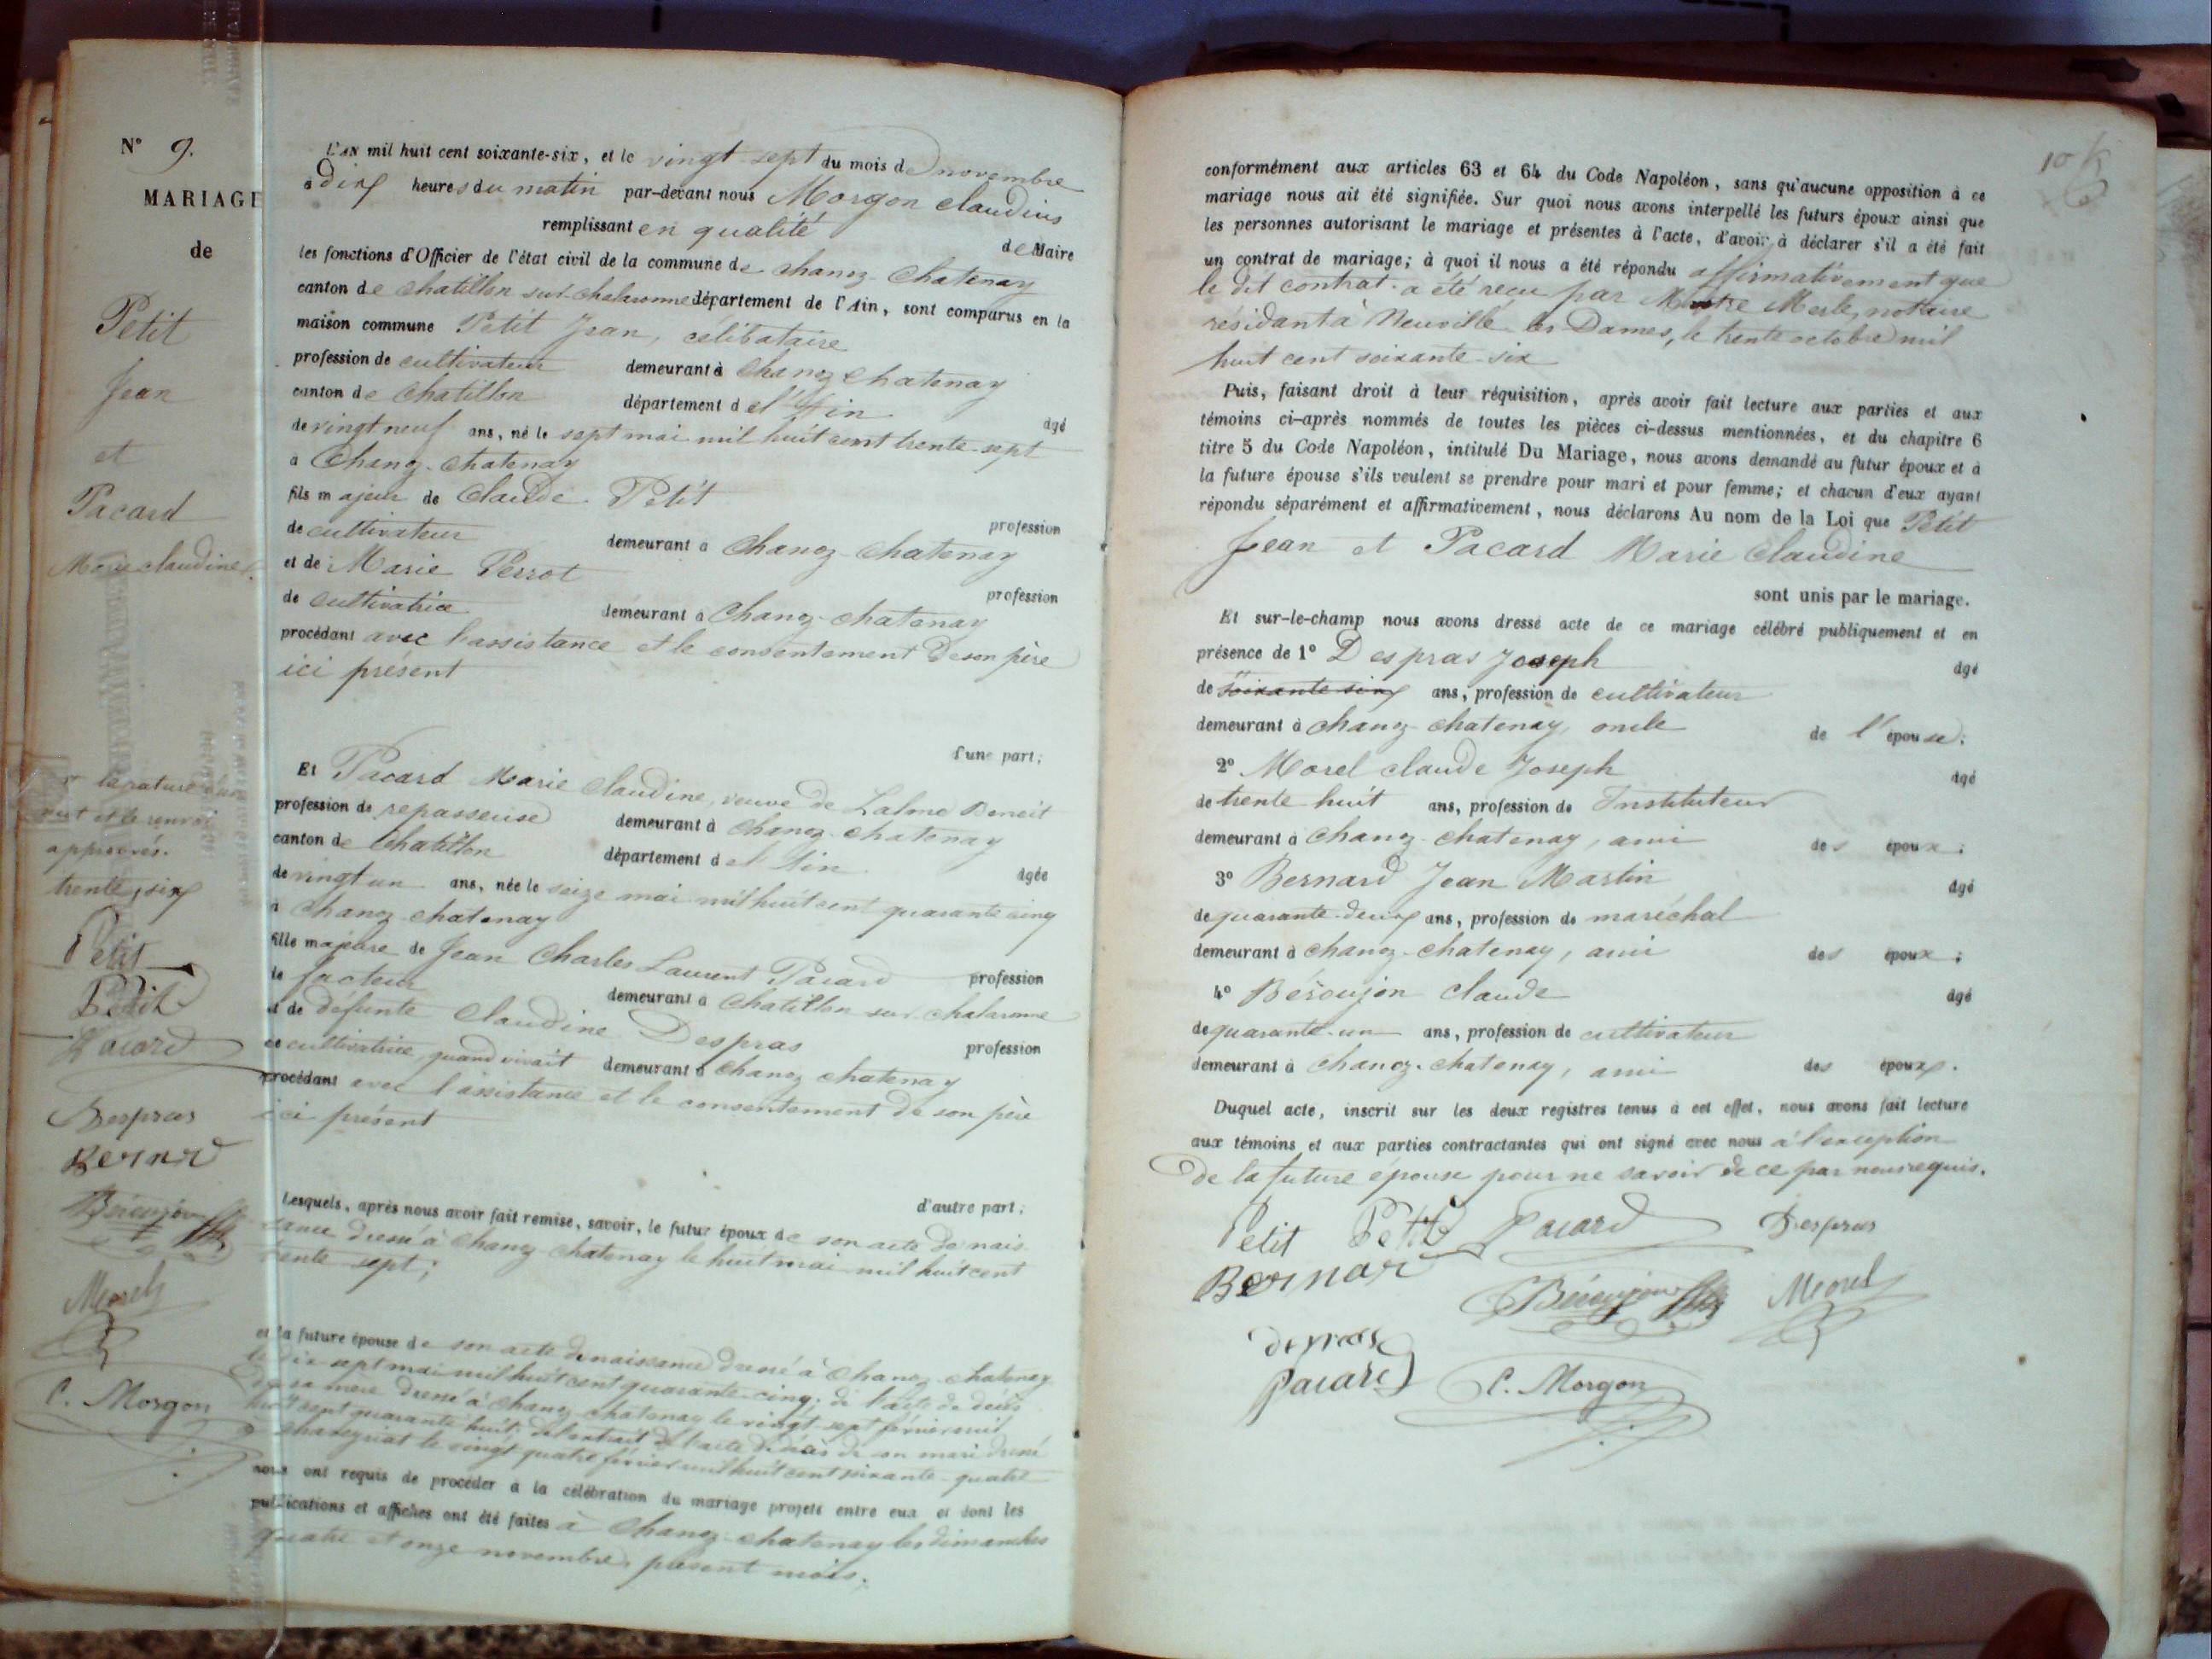 N° 9.
MARIAGE
de
Petit
Jean
et
Pacard
Marie claudine
la rature
et le renvoi
approuvés.
trente six
Petit
Petit
Pacard
Despras
Bernard
Béroujon
Morel
C. Morgon
L'AN mil huit cent soixante-six, et le vingt sept du mois de novembre
à dix heures du matin par-devant nous Morgon Claudius
remplissant en qualité de Maire
les fonctions d'Officier de l'état civil de la commune de Chanoz-Chatenay
canton de Chatillon sur chalaronne département de l'Ain, sont comparus en la
maison commune Petit Jean, célibataire
profession de cultivateur demeurant à Chanoz chatenay
canton de Chatillon département de l'Ain âgé
de vingt neuf ans, né le sept mai mil huit cent trente-sept
à Chanoz-Chatenay
fils majeur de Claude Petit profession
de cultivateur demeurant à Chanoz-Chatenay
et de Marie Perrot profession
de cultivatrice demeurant à Chanoz-chatenay
procédant avec l'assistance et le consentement de son père
ici présent
d'une part;
Et Pacard Marie Claudine, veuve de Lalme Benoit
profession de repasseuse demeurant à Chanoz-chatenay
canton de Chatillon département de l'Ain âgée
de vingt un ans, née le seize mai mil huit cent quarante cinq
à Chanoz chatenay
fille majeure de Jean Charles Laurent Pacard profession
de facteur demeurant à Chatillon sur chalaronne
et de défunte Claudine Despras profession
de cultivatrice, quand vivait demeurant à Chanoz chatenay
procédant avec l'assistance et le consentement de son père
ici présent
d'autre part;
Lesquels, après nous avoir fait remise, savoir, le futur époux de son acte de nais
sance dressé à Chanoz-chatenay le huit mai mil huit cent
trente sept;
et la future épouse de son acte de naissance dressé à Chanoz chatenay
le dix sept mai mil huit cent quarante-cinq; de l'acte de décès
de sa mère dressé à Chanoz-chatenay le vingt-sept février mil
huit cent quarante huit; de l'extrait de l'acte de décès de son mari dressé
à le vingt quatre février mil huit cent soixante-quatre
nous ont requis de procéder à la célébration du mariage projeté entre eux et dont les
publications et affiches ont été faites à Chanoz-chatenay les dimanches
quatre et onze novembre, présent mois.
conformément aux articles 63 et 64 du Code Napoléon, sans qu'aucune opposition à ce
mariage nous ait été signifiée. Sur quoi nous avons interpellé les futurs époux ainsi que
les personnes autorisant le mariage et présentes à l'acte, d'avoir à déclarer s'il a été fait
un contrat de mariage; à quoi il nous a été répondu affirmativement que
le dit contrat a été reçu par Maitre Merle, notaire
résidant à Neuville les Dames, le trente octobre mil
huit cent soixante-six
Puis, faisant droit à leur réquisition, après avoir fait lecture aux parties et aux
témoins ci-après nommés de toutes les pièces ci-dessus mentionnées, et du chapitre 6
titre 5 du Code Napoléon, intitulé Du Mariage, nous avons demandé au futur époux et à
la future épouse s'ils veulent se prendre pour mari et pour femme; et chacun d'eux ayant
répondu séparément et affirmativement, nous déclarons Au nom de la Loi que Petit
Jean et Pacard Marie Claudine
sont unis par le mariage.
Et sur-le-champ nous avons dressé acte de ce mariage célébré publiquement et en
présence de 1° Despras Joseph âgé
de soixante six ans, profession de cultivateur
demeurant à chanoz chatenay, oncle de l'épouse;
2° Morel claude Joseph âgé
de trente huit ans, profession de Instituteur
demeurant à chanoz-chatenay, ami des époux;
3° Bernard Jean Martin âgé
de quarante-deux ans, profession de maréchal
demeurant à chanoz-chatenay, ami des époux;
4° Béroujon Claude âgé
de quarante-un ans, profession de cultivateur
demeurant à chanoz-chatenay, ami des époux.
Duquel acte, inscrit sur les deux registres tenus à cet effet, nous avons fait lecture
aux témoins et aux parties contractantes qui ont signé avec nous à l'exception
de la future épouse pour ne savoir de ce par nous requis.
Petit Petit Pacard Despras
Bernard Béroujon Morel
despras
pacard C. Morgon